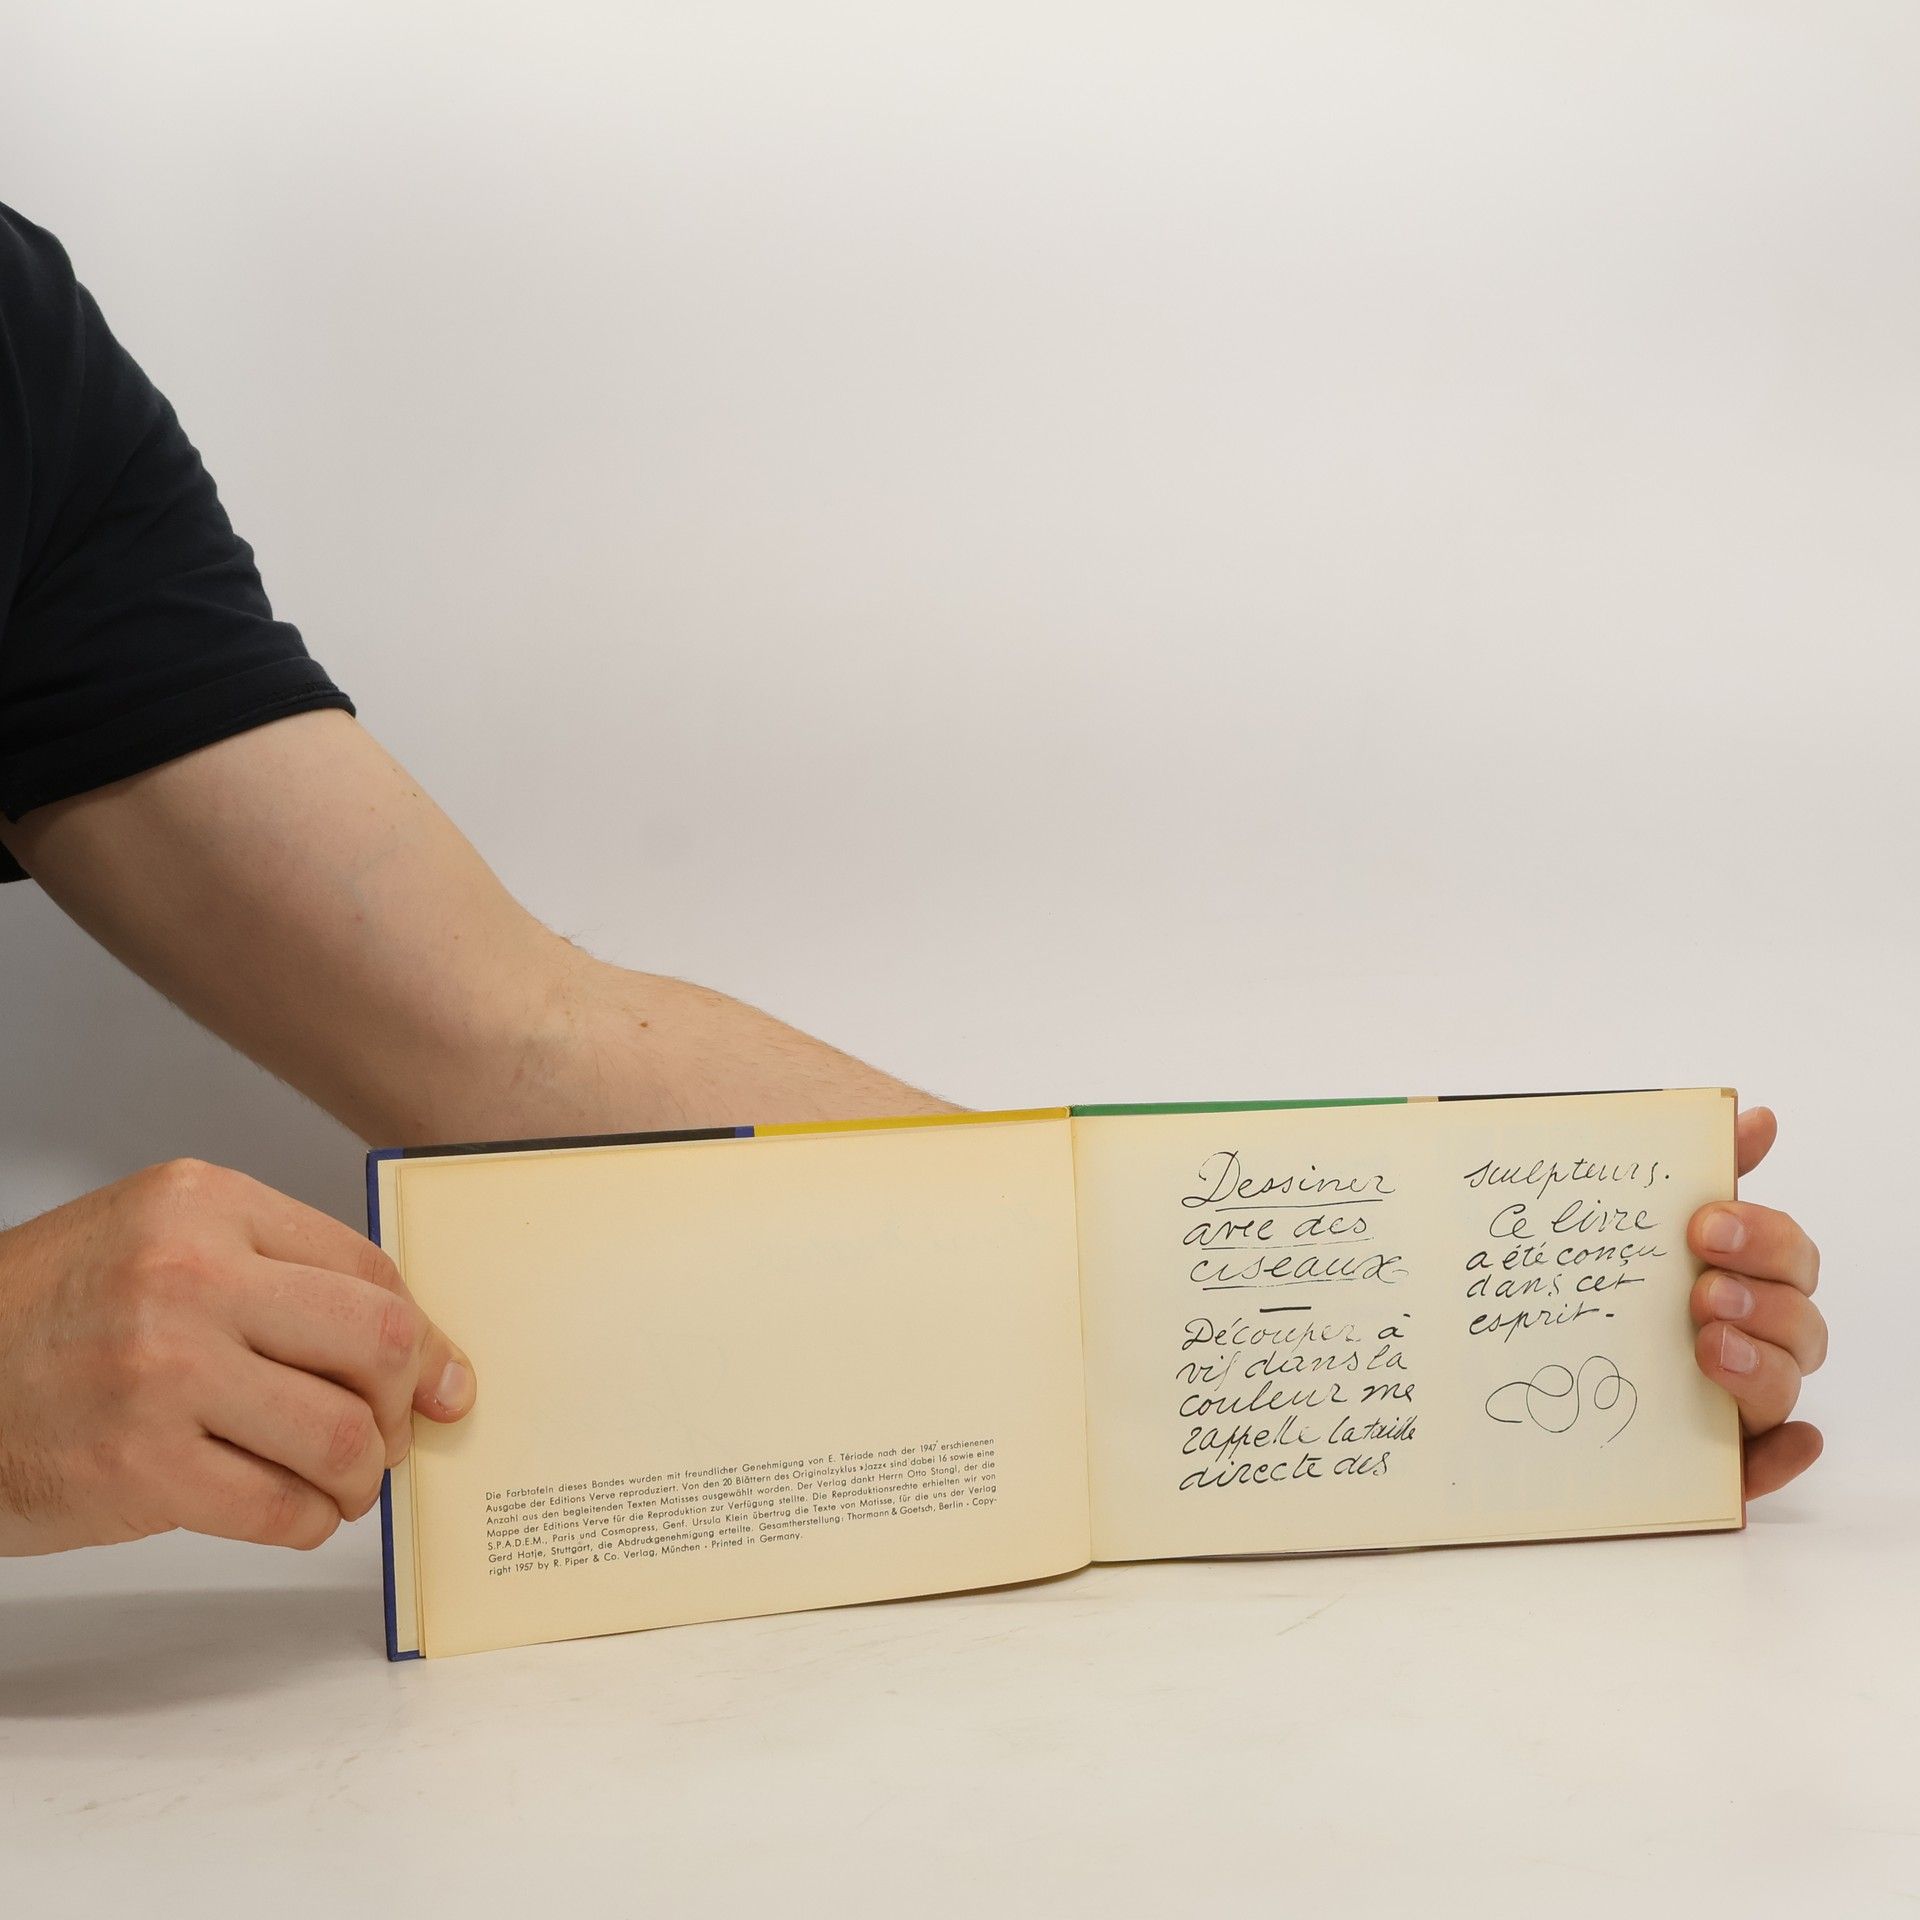 Die Farbtafeln dieses Bandes wurden mit freundlicher Genehmigung von E. Tériade nach der 1947 erschienenen
Ausgabe der Editions Verve reproduziert. Von den 20 Blättern des Originalzyklus »Jazz« sind dabei 16 sowie eine
Anzahl aus den begleitenden Texten Matisses ausgewählt worden. Der Verlag dankt Herrn Otto Stangl, der die
Mappe der Editions Verve für die Reproduktion zur Verfügung stellte. Die Reproduktionsrechte erhielten wir von
S.P.A.D.E.M., Paris und Cosmapress, Genf. Ursula Klein übertrug die Texte von Matisse, für die uns der Verlag
Gerd Hatje, Stuttgart, die Abdruckgenehmigung erteilte. Gesamtherstellung: Thormann & Goetsch, Berlin - Copy-
right 1957 by R. Piper & Co. Verlag, München - Printed in Germany.
Dessiner
avec des
ciseaux
Découper à
vif dans la
couleur me
rappelle la taille
directe des
sculpteurs.
Ce livre
a été conçu
dans cet
esprit.